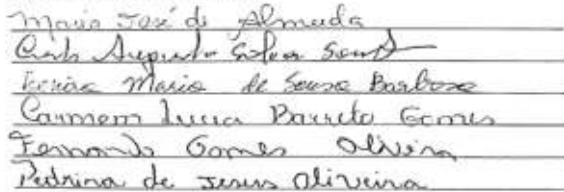 Maria José de Almeida
Carlos Augusto Souza
Maria de Sousa Barbosa
Carmem Lucia Barreto Gomes
Fernando Gomes Oliveira
Pedrina de Jesus Oliveira